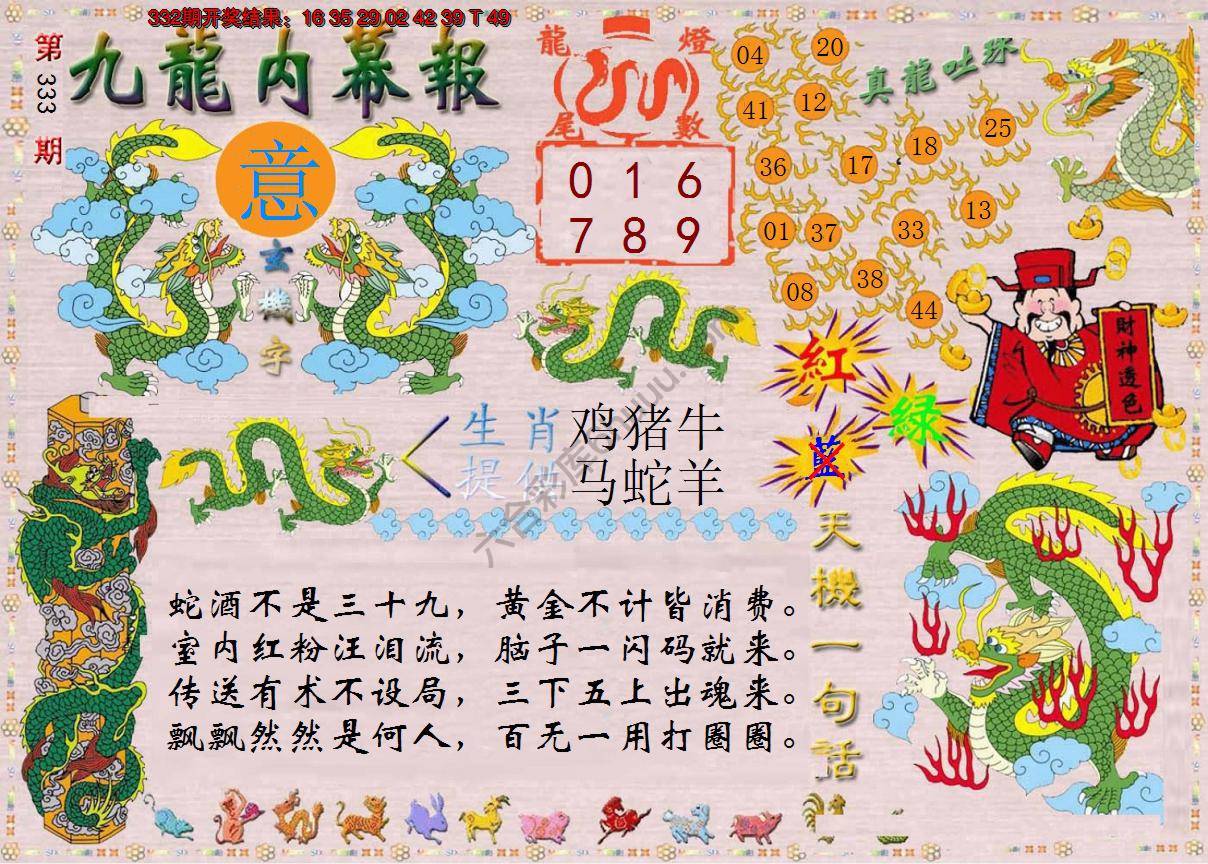 332期开奖结果：16 35 29 02 42 39 T 49
第333期
九龍内幕報
意
玄機字
龍燈
尾數
0 1 6
7 8 9
真龍吐珠
04 20
41 12
36 17 18 25
01 37 33 13
08 38 44
財神透色
紅
綠
藍
生肖 鸡猪牛
提供 马蛇羊
天機一句話
蛇酒不是三十九，黄金不计皆消费。
室内红粉汪泪流，脑子一闪码就来。
传送有术不设局，三下五上出魂来。
飘飘然然是何人，百无一用打圈圈。